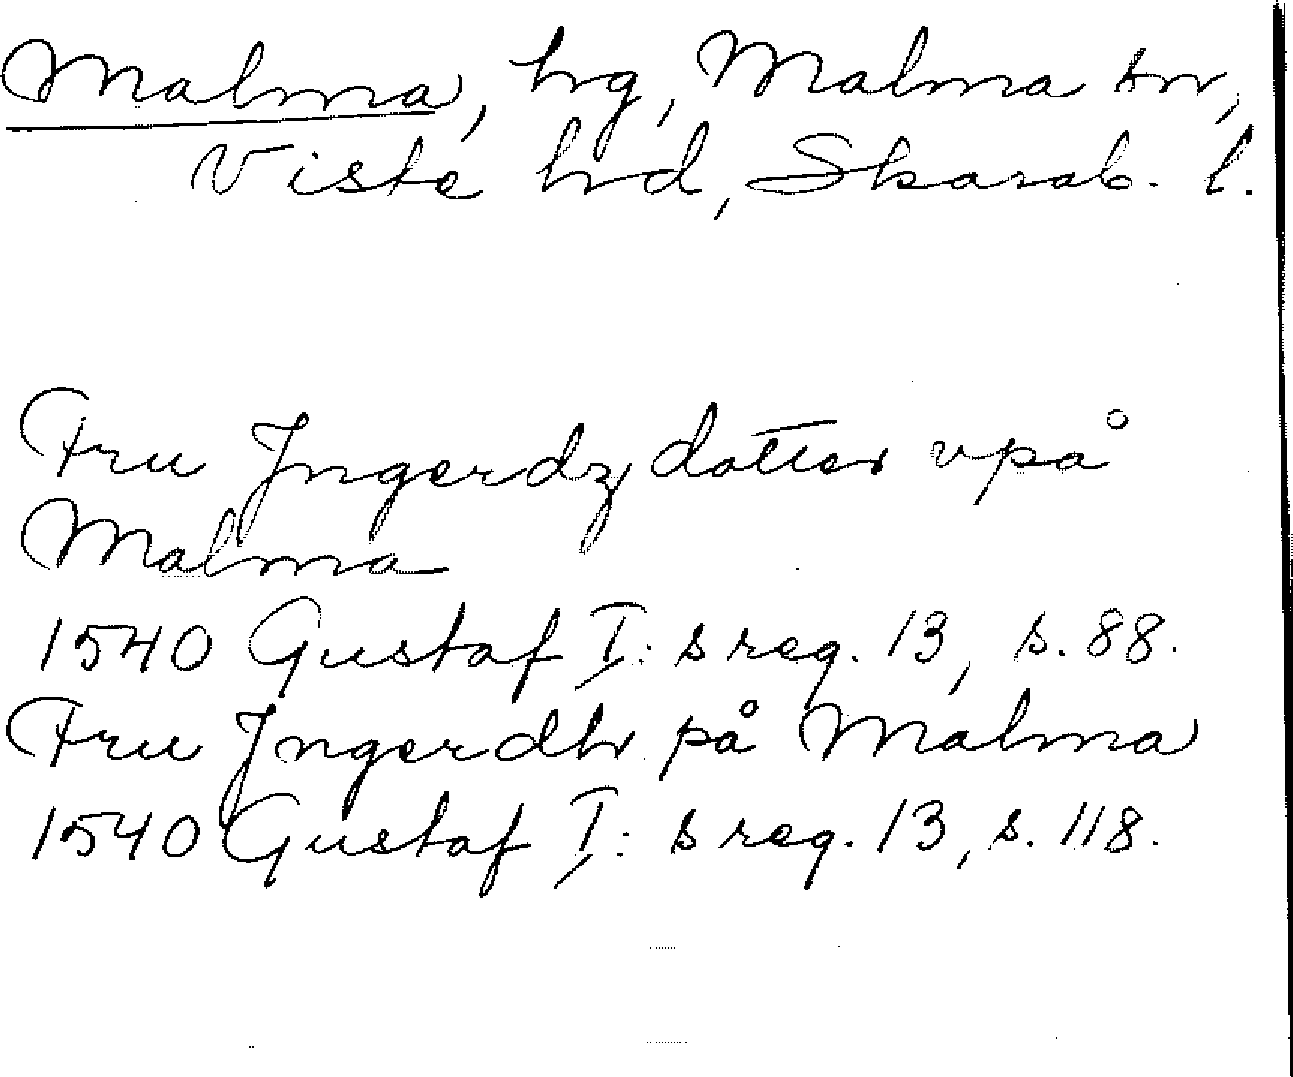 Malma, hg, Malma sn,
Viste hrd, Skarab. l.
Fru Jngerdz dotter vpå
Malma
1540 Gustaf I:s reg. 13, s. 88.
Fru Jngerdh på Malma
1540 Gustaf I:s reg. 13, s. 118.